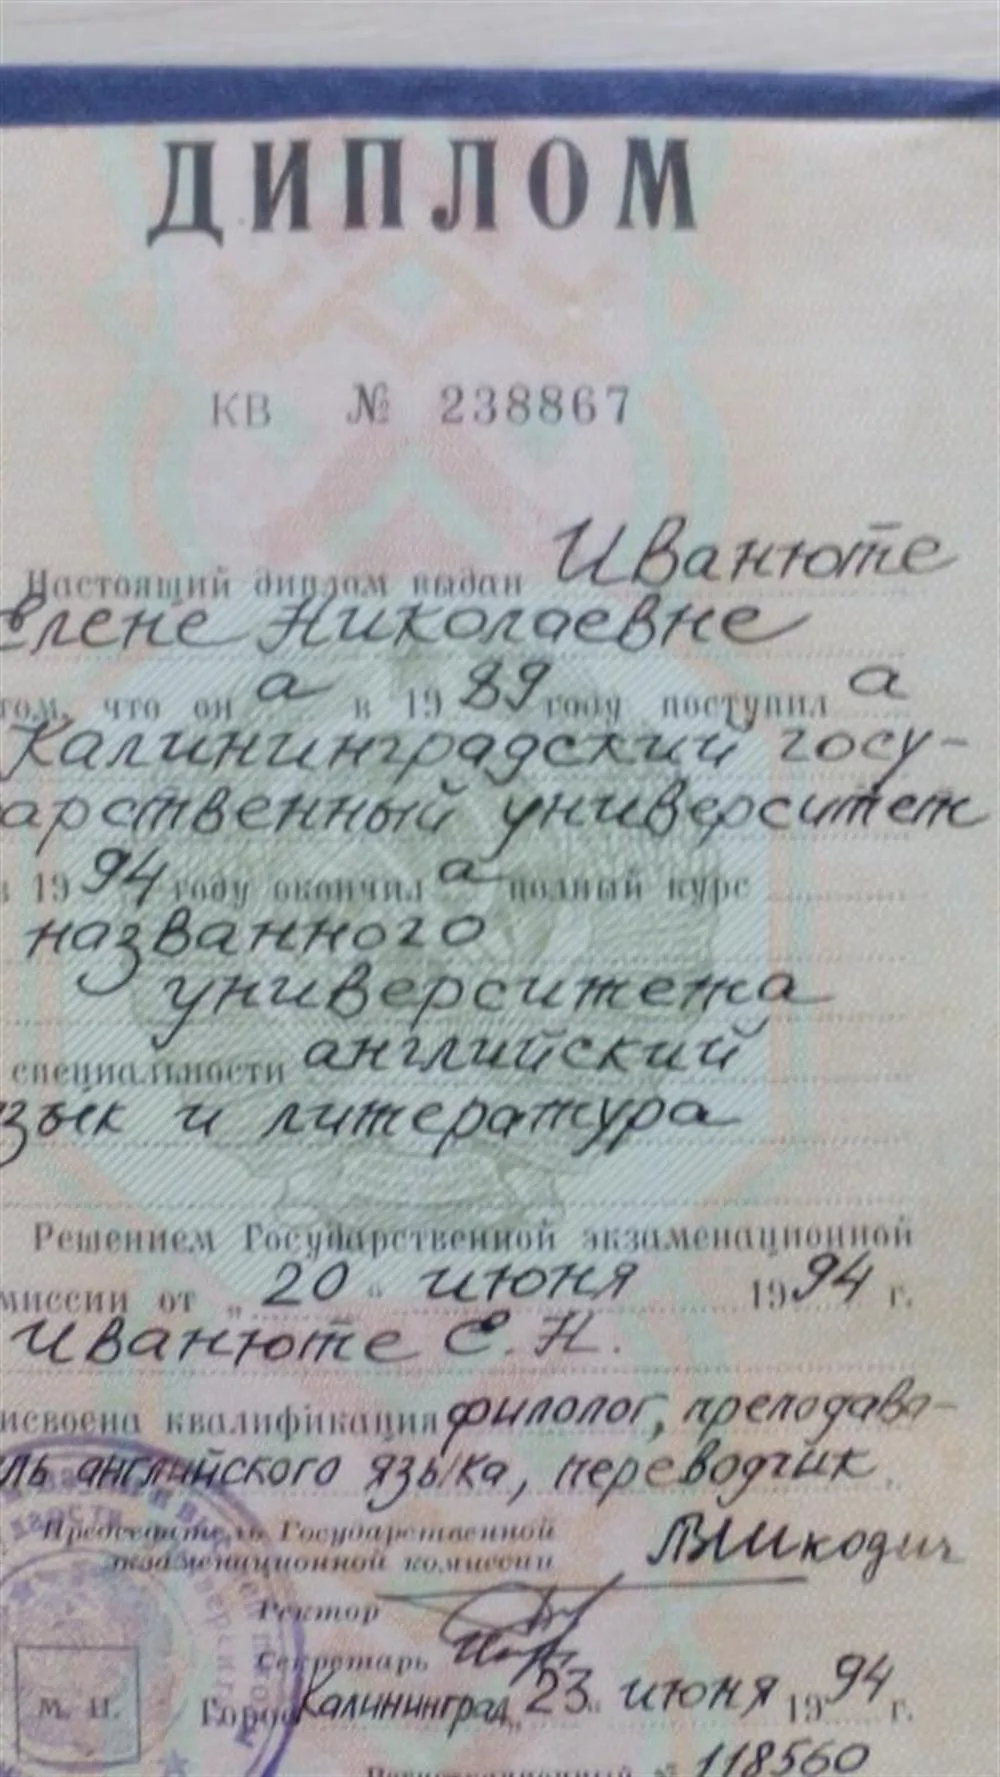 ДИПЛОМ
КВ № 238867
Настоящий диплом выдан Иванюте
Елене Николаевне
том, что он а в 1989 году поступил а
Калининградский госу-
дарственный университет
в 1994 году окончил а полный курс
названного
университета
специальности английский
язык и литература
Решением Государственной экзаменационной
миссии от „20“ июня 1994 г.
Иванюте Е. Н.
исвоена квалификация филолог, преподава-
ль английского языка, переводчик
Председатель Государственной
экзаменационной комиссии
Ректор
Секретарь
Город Калининград „23“ июня 1994 г.
М. П.
Регистрационный № 118560